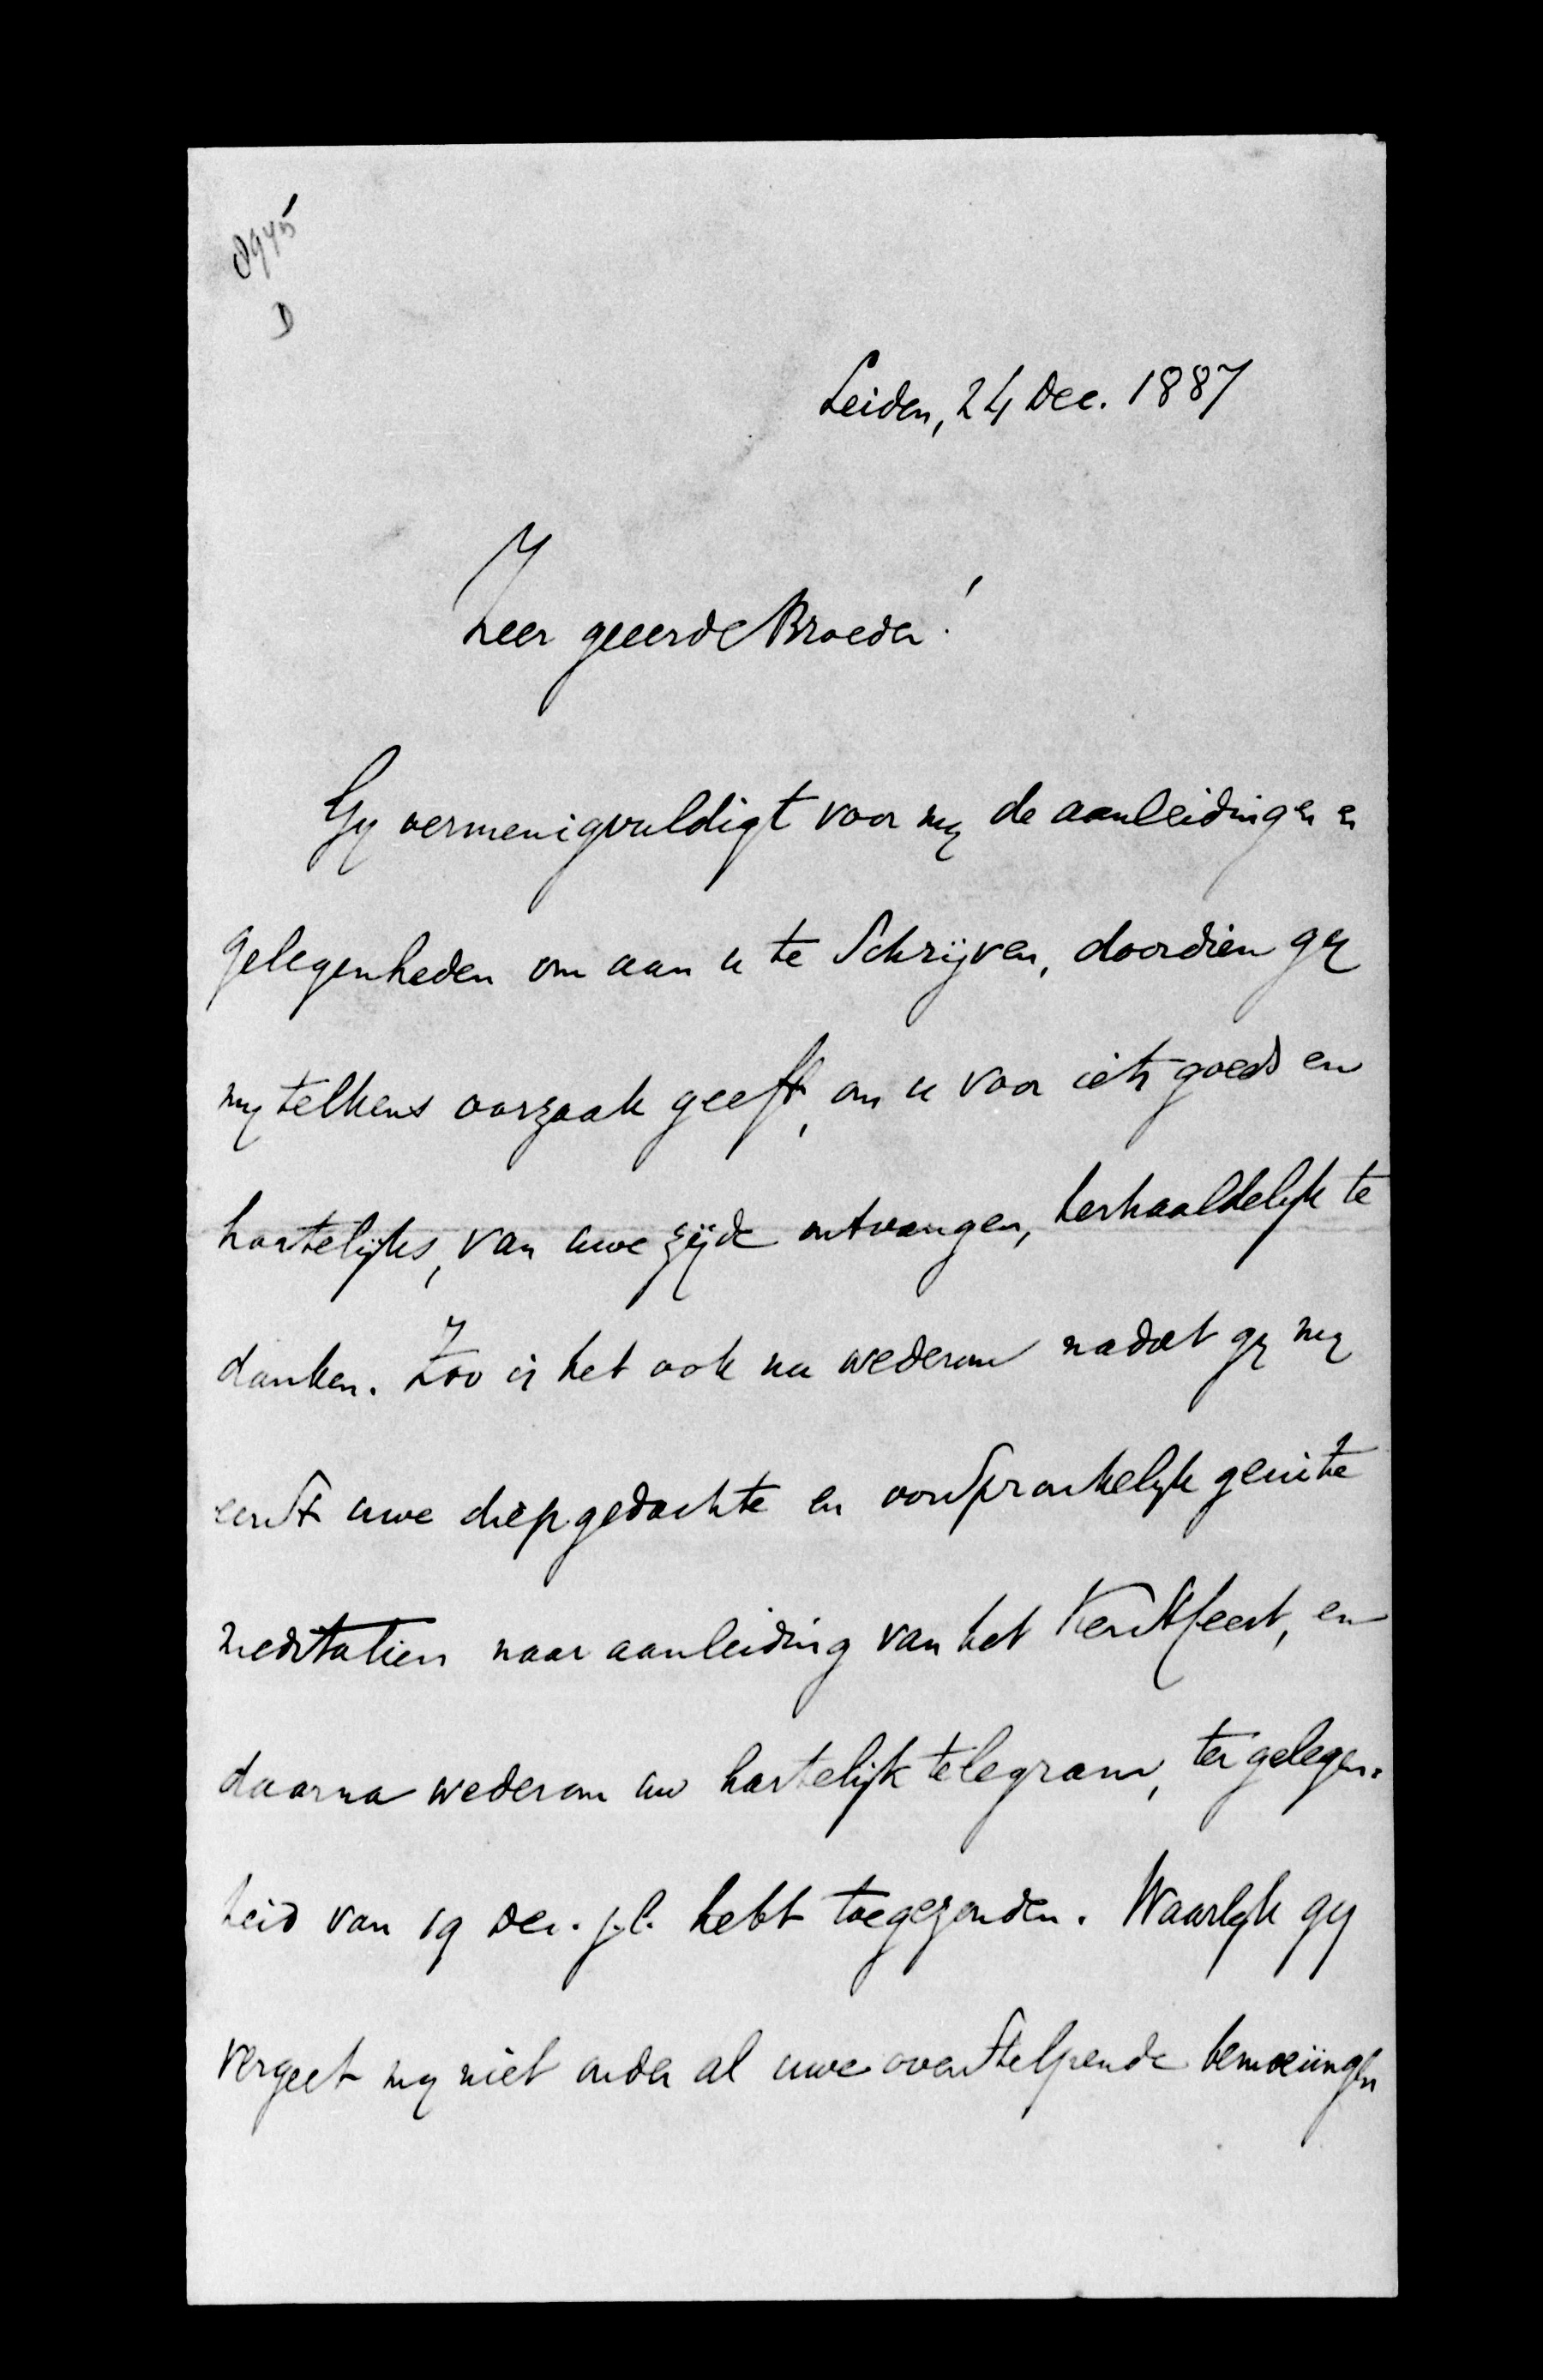 8945
D
Leiden, 24 Dec. 1887
Zeer geeerde Broeder!
Gy vermenigvuldigt voor my de aanleidingen en
gelegenheden om aan u te schrijven, doordien gy
my telkens oorzaak geeft, om u voor iets goeds en
hartelijks, van uwe zijde ontvangen, herhaaldelyk te
danken. Zoo is het ook nu wederom nadat gy my
eerst uwe diepgedachte en oorspronkelyk geuite
meditatien naar aanleiding van het Kerstfeest, en
daarna wederom uw hartelijk telegram, ter gelegen=
heid van 19 Dec. j.l. hebt toegezonden. Waarlyk gy
vergeet my niet onder al uwe overstelpende bemoeiingen